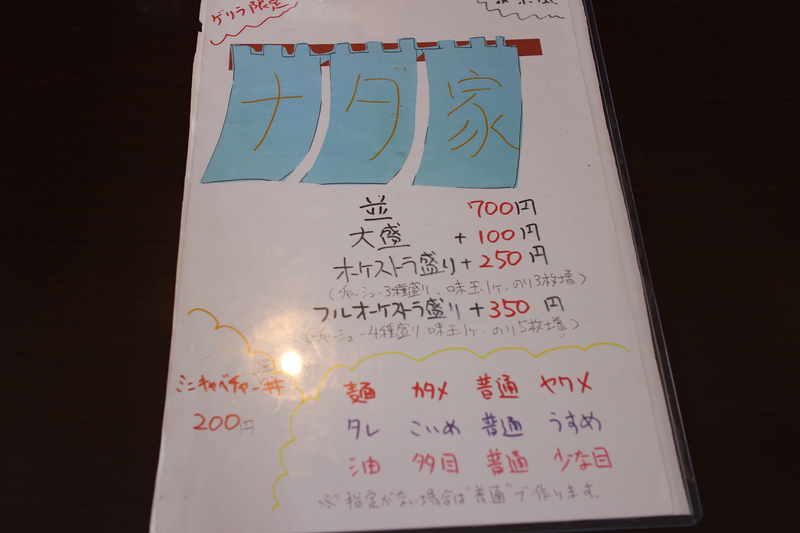 ゲリラ限定
ナダ家
並 700円
大盛 +100円
オーケストラ盛り+250円
(チャーシュー3種盛り、味玉1ヶ、のり3枚増)
フルオーケストラ盛り+350円
(チャーシュー4種盛り、味玉1ヶ、のり5枚増)
ミニキャベチャー丼
200円
麺 カタメ 普通 ヤワメ
タレ こいめ 普通 うすめ
油 多目 普通 少な目
※指定がない場合は"普通"で作ります。